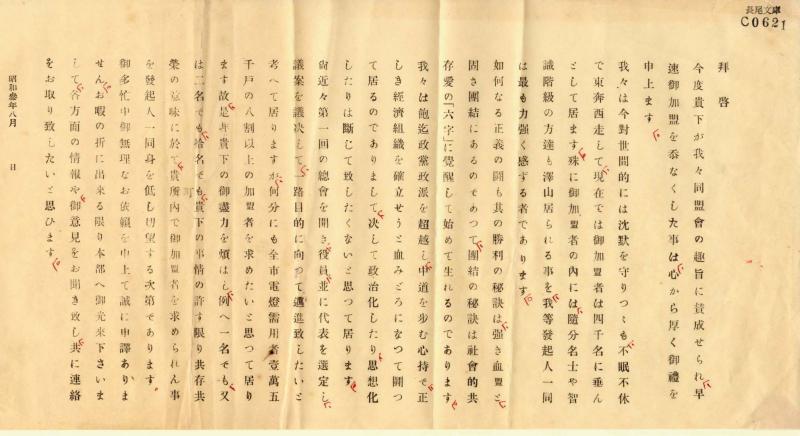 長尾文庫
C0621
拝啓
今度貴下が我々同盟會の趣旨に賛成せられ早
速御加盟を忝なくした事は心から厚く御禮を
申上ます
我々は今對世間的には沈默を守りつゝも不眠不休
で東奔西走して現在では御加盟者は四千名に垂ん
として居ます殊に御加盟者の內には隨分名士や智
識階級の方達も澤山居られる事を我等發起人一同
は最も力强く感ずる者であります
如何なる正義の鬪も其の勝利の秘訣は强き血盟と
固き團結にあるのであつて團結の秘訣は社會的共
存愛の「六字」に覺醒して始めて生れるのであります
我々は飽迄政黨政派を超越し中道を步む心持で正
しき經濟組織を確立せうと血みどろになつて鬪つ
て居るのでありまして決して政治化したり思想化
したりは斷じて致したくないと思つて居ります
尙近々第一回の總會を開き役員並に代表を選定し
議案を議決して一路目的に向つて邁進致したいと
考へて居りますが何分にも全市電燈需用者壹萬五
千戶の八割以上の加盟者を求めたいと思つて居り
ます故是非貴下の御盡力を煩はし例へ一名でも又
は二名でも拾名でも貴下の事情の許す限り共存共
榮の意味に於て貴所內で御加盟者を求められん事
町
を發起人一同身を低し切望する次第であります
御多忙中御無理なお依賴を申上て誠に申譯ありま
せんお暇の折に出來る限り本部へ御光來下さいま
して各方面の情報や御意見をお聞き致し共に連絡
をお取り致したいと思ひます
昭和叄年八月　日